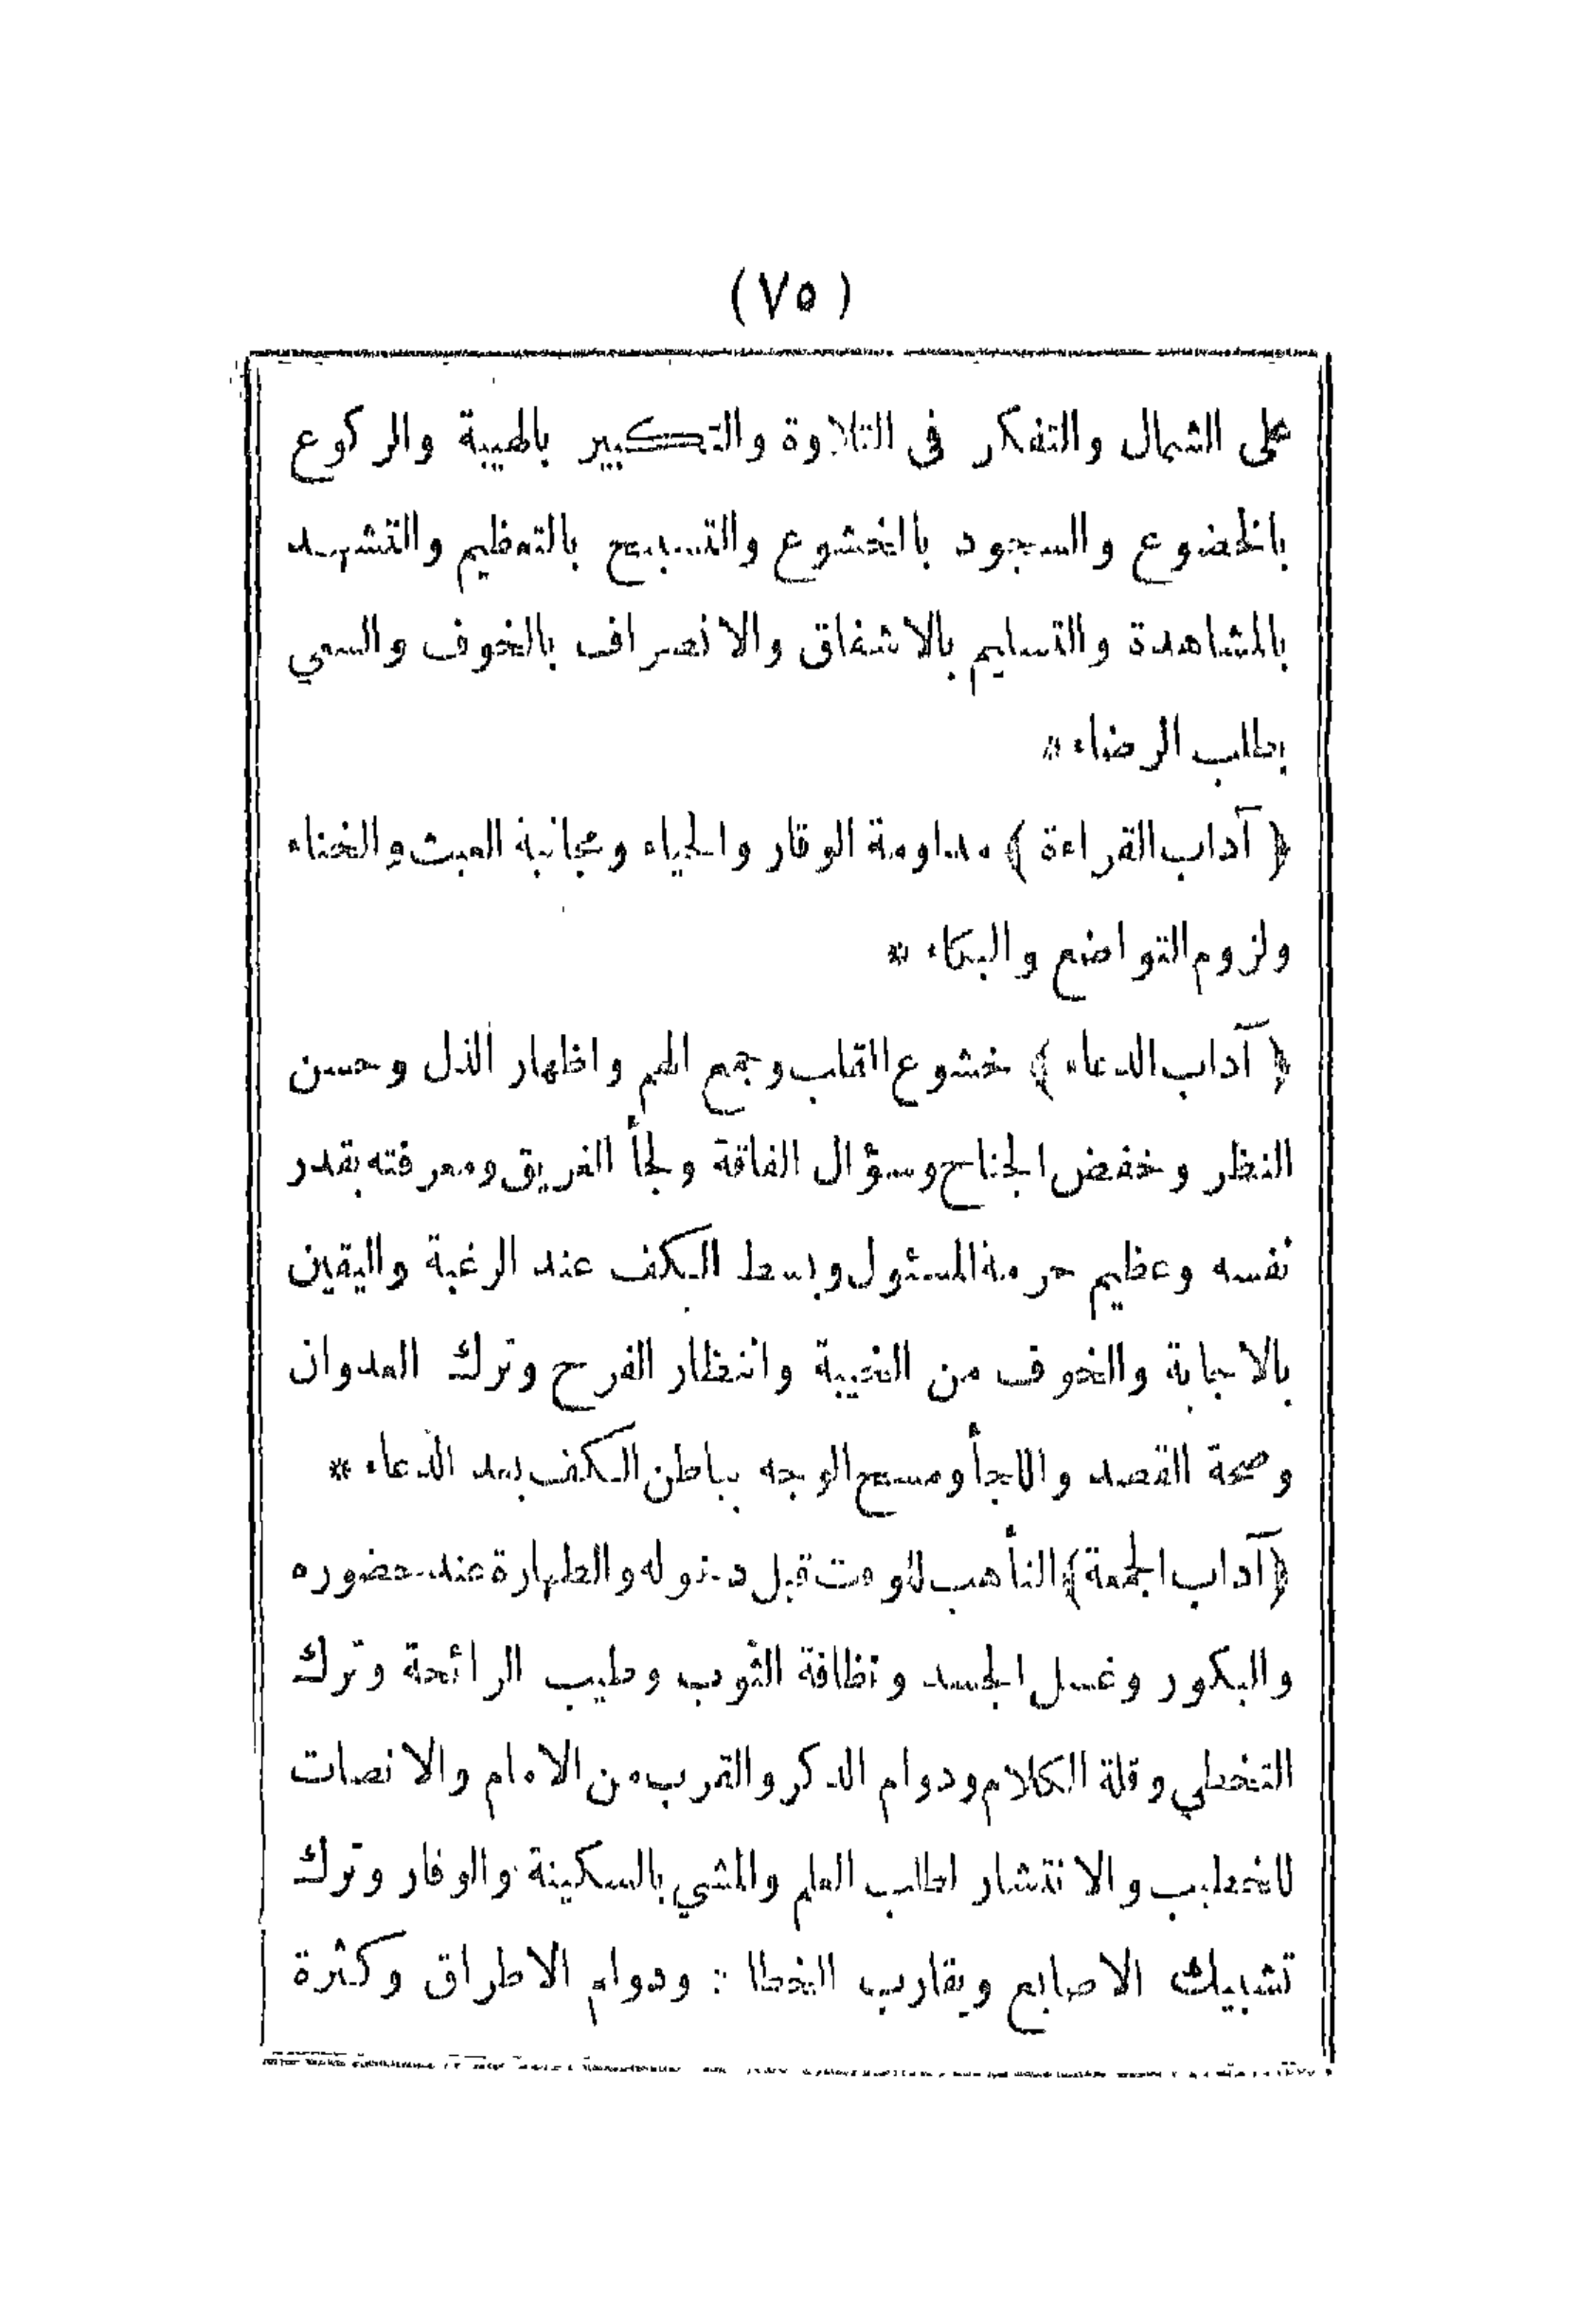 (٧٥)
على الشمال والتفكر فى التلاوة والتكبير بالهيبة والركوع
بالخضوع والسجود بالخشوع والتسبيح بالتعظيم والتشهد
بالمشاهدة والتسليم بالاشفاق والانصراف بالخوف والسعي
بطلب الرضاء *
﴿ آداب القراءة ﴾ مداومة الوقار والحياء ومجانبة العبث والخناء
ولزوم التواضع والبكاء *
﴿ آداب الدعاء ﴾ خشوع القلب وجمع الهم واظهار الذل وحسن
النظر وخفض الجناح وسؤال الفاقة ولجأ الغريق ومعرفته بقدر
نفسه وعظيم حرمة المسئول وبسط الكف عند الرغبة واليقين
بالاجابة والخوف من الخيبة وانتظار الفرح وترك العدوان
وصحة القصد واللجأ ومسح الوجه بباطن الكف بعد الدعاء *
﴿ آداب الجمعة ﴾ التأهب للوقت قبل دخوله والطهارة عند حضوره
والبكور وغسل الجسد ونظافة الثوب وطيب الرائحة وترك
التخطي وقلة الكلام ودوام الذكر والقرب من الامام والانصات
للخطيب والانتشار لطلب العلم والمشي بالسكينة والوقار وترك
تشبيك الاصابع ويقارب الخطا : ودوام الاطراق وكثرة